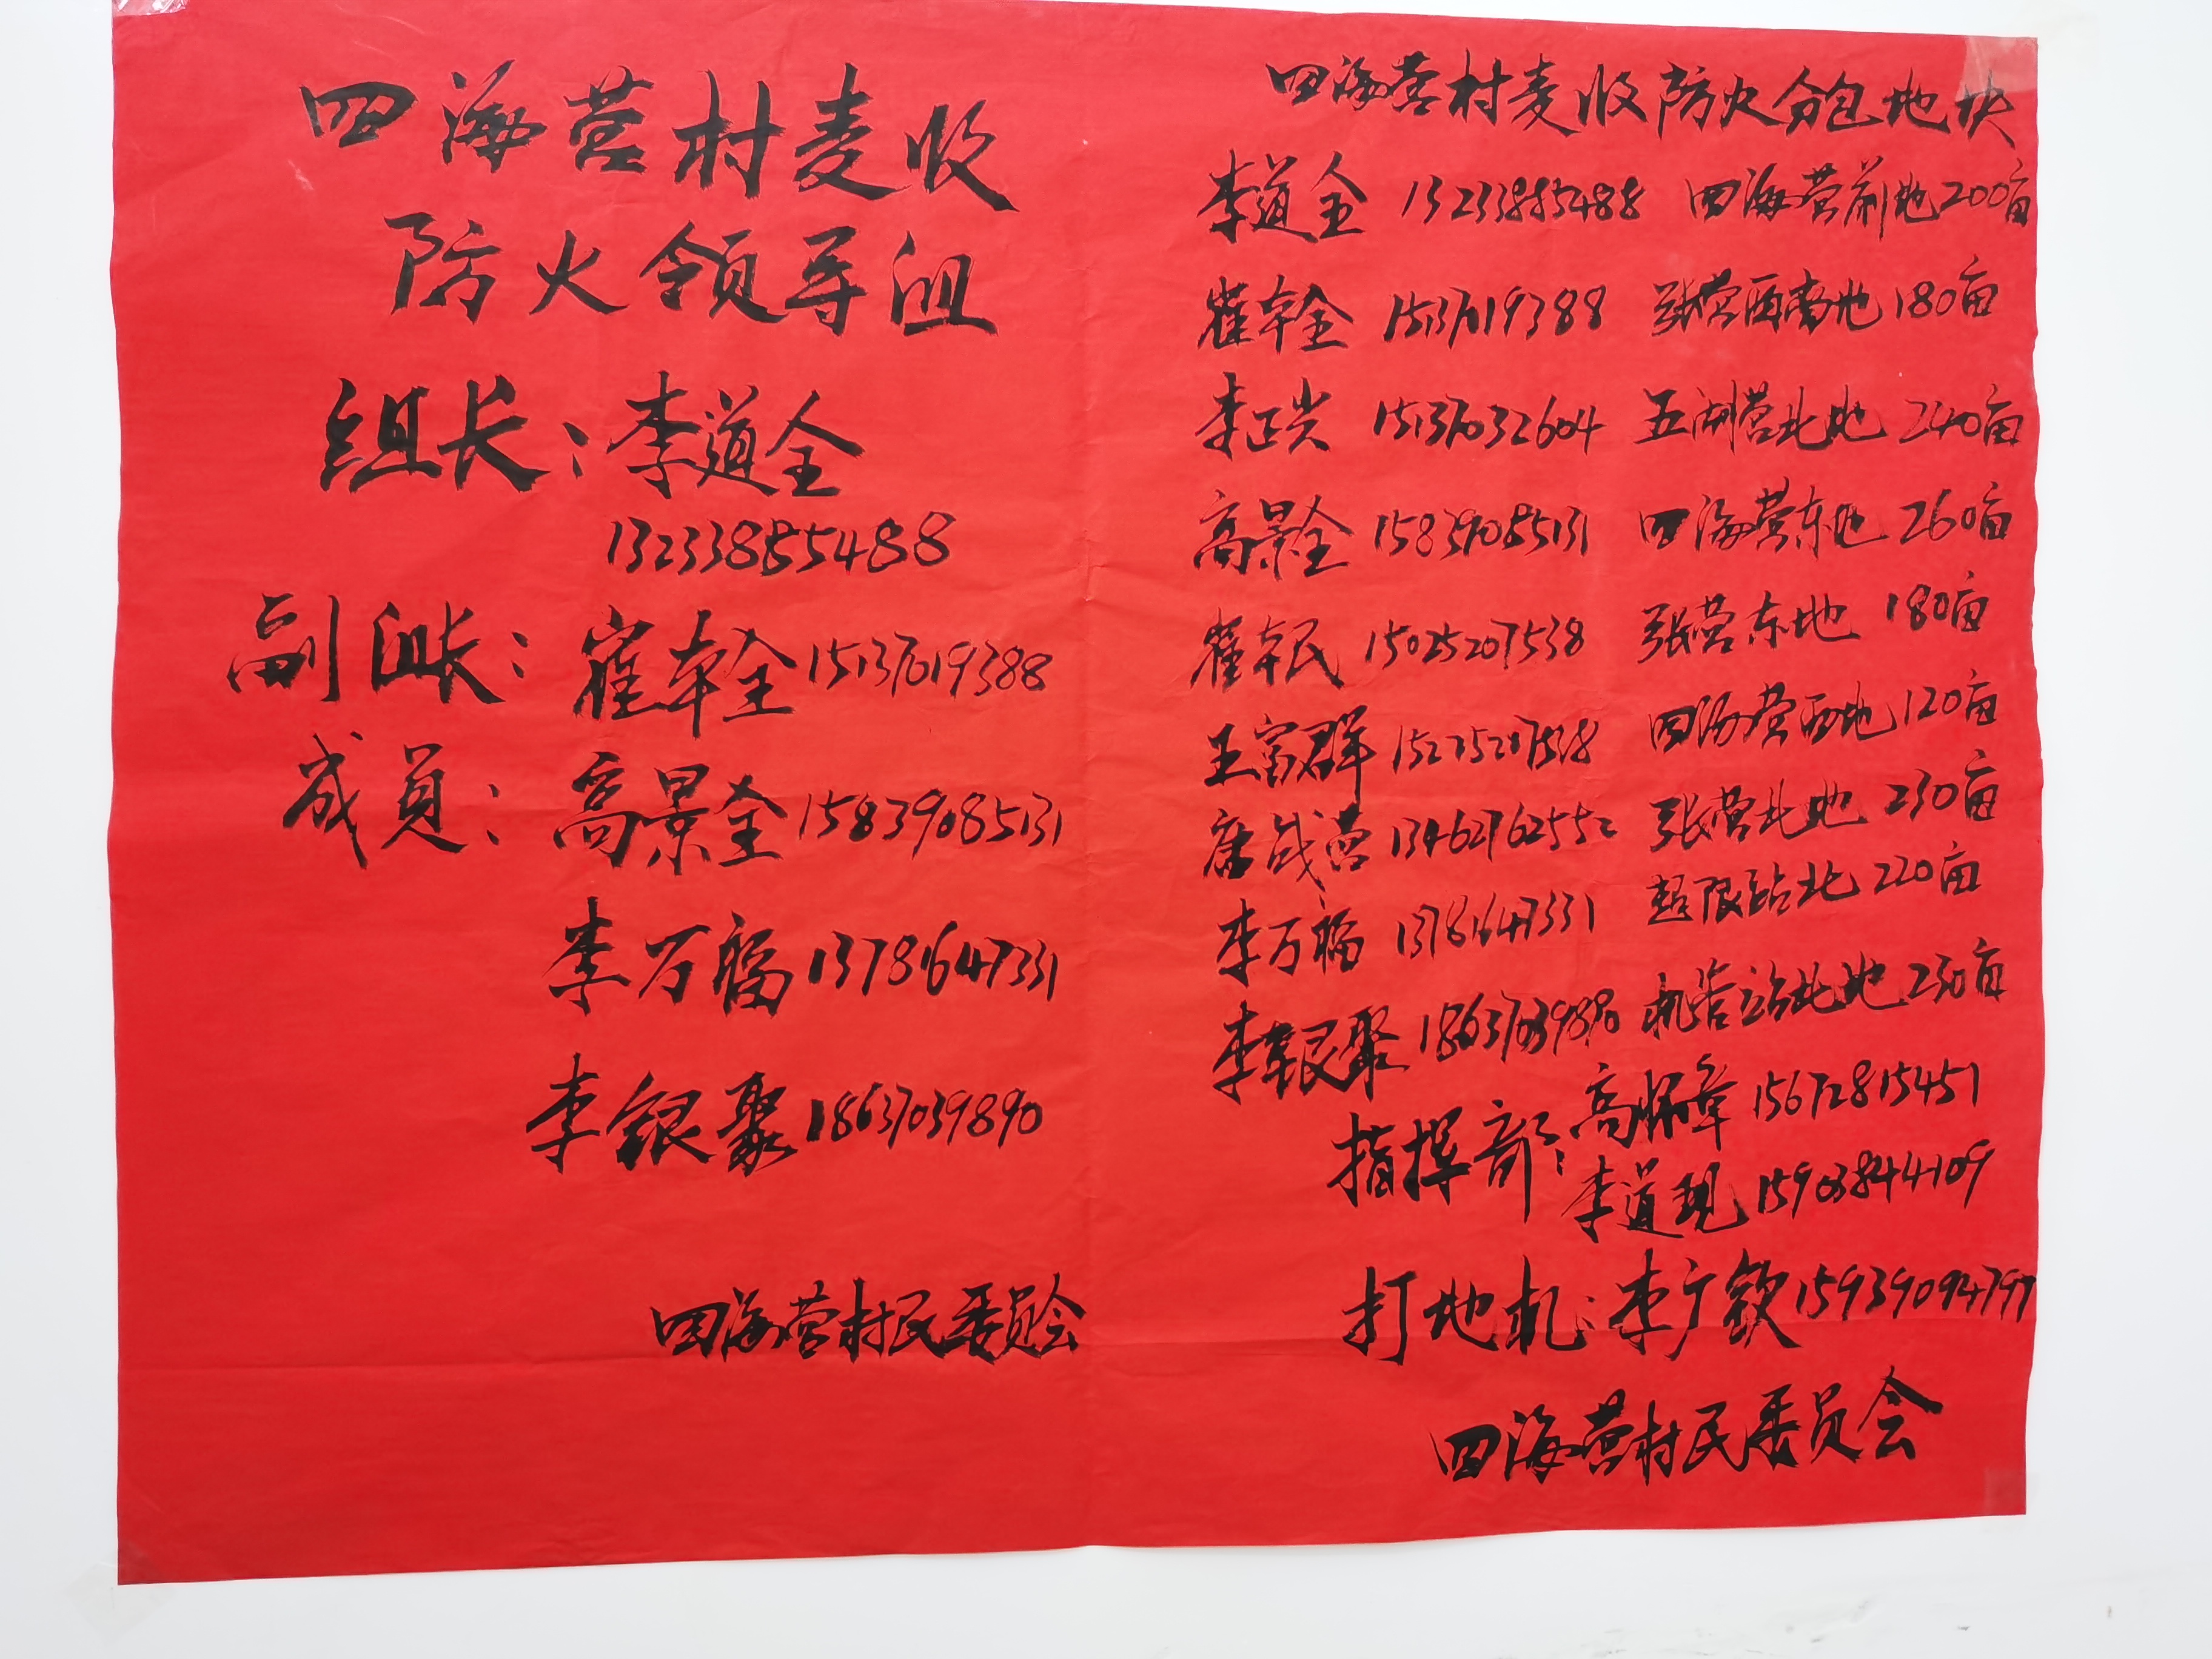 四海营村麦收
防火领导组
组长：李道全
13233885488
副组长：崔本全15137019388
成员：高景全15839085131
李万福13781647331
李银聚18637039890
四海营村民委员会
四海营村麦收防火分包地块
李道全 13233885488 四海营前地200亩
崔本全 15137019388 张营西南地180亩
李正光 15137032604 五湖营北地 240亩
高景全 15839085131 四海营东地 260亩
崔本民 15025207538 张营东地 180亩
王富群 四海营西地 120亩
战营 13462762552 张营北地 230亩
李万福 13781647331 超限站北 220亩
李银聚 18637039890 站北地 230亩
指挥部：高怀章 15672815451
李道现 15903844109
打地机：李广钦15939094797
四海营村民委员会